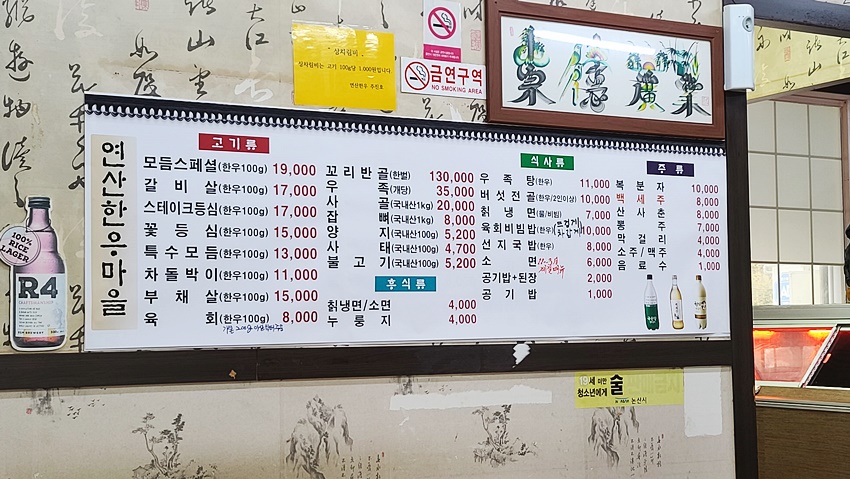 " 상차림비 "
상차림비는 고기 100g당 1,000원입니다
연산한우 주인호
금연구역
NO SMOKING AREA
연산한우마을
고기류
모듬스페셜(한우100g) 19,000
갈비살(한우100g) 17,000
스테이크등심(한우100g) 17,000
꽃등심(한우100g) 15,000
특수모듬(한우100g) 13,000
차돌박이(한우100g) 11,000
부채살(한우100g) 15,000
육회(한우100g) 8,000
꼬리반골(한벌) 130,000
우족(개당) 35,000
사골(국내산1kg) 20,000
잡뼈(국내산1kg) 8,000
양지(국내산100g) 5,200
사태(국내산100g) 4,700
불고기(국내산100g) 5,200
후식류
칡냉면/소면 4,000
누룽지 4,000
식사류
우족탕(한우) 11,000
버섯전골(한우/2인이상) 10,000
칡냉면(물/비빔) 7,000
육회비빔밥(한우) 10,000
선지국밥(한우) 8,000
소면 6,000
공기밥+된장 2,000
공기밥 1,000
주류
복분자 10,000
백세주 8,000
산사춘 8,000
뽕주 7,000
막걸리 4,000
소주/맥주 4,000
음료수 1,000
100% RICE LAGER
R4
19세 미만
청소년에게 술
논산시